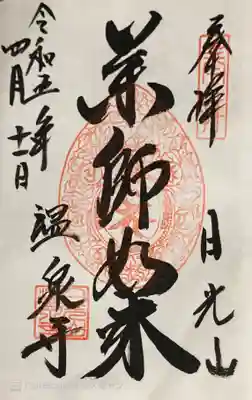 奉拝
日光山
薬師如来
温泉寺
令和五年
四月十一日